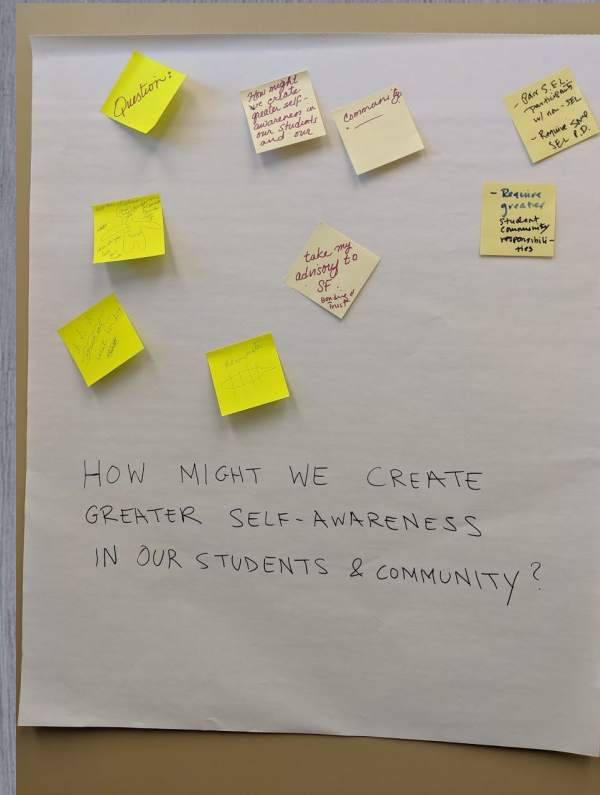 Question:
How might
we create
greater self-
awareness in
our students
and our
community
- Pair S.E.L.
participants
w/ non-SEL
- Require some
SEL P.D.
- Require
greater
student
community
responsibili-
ties
take my
advisory to
SF.
HOW MIGHT WE CREATE
GREATER SELF-AWARENESS
IN OUR STUDENTS & COMMUNITY?